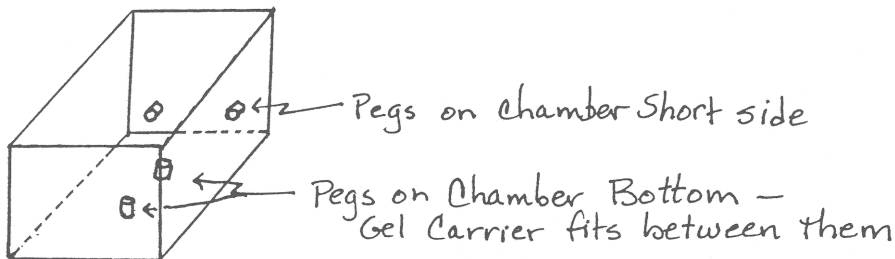 Pegs on Chamber Short side
Pegs on Chamber Bottom —
Gel Carrier fits between them